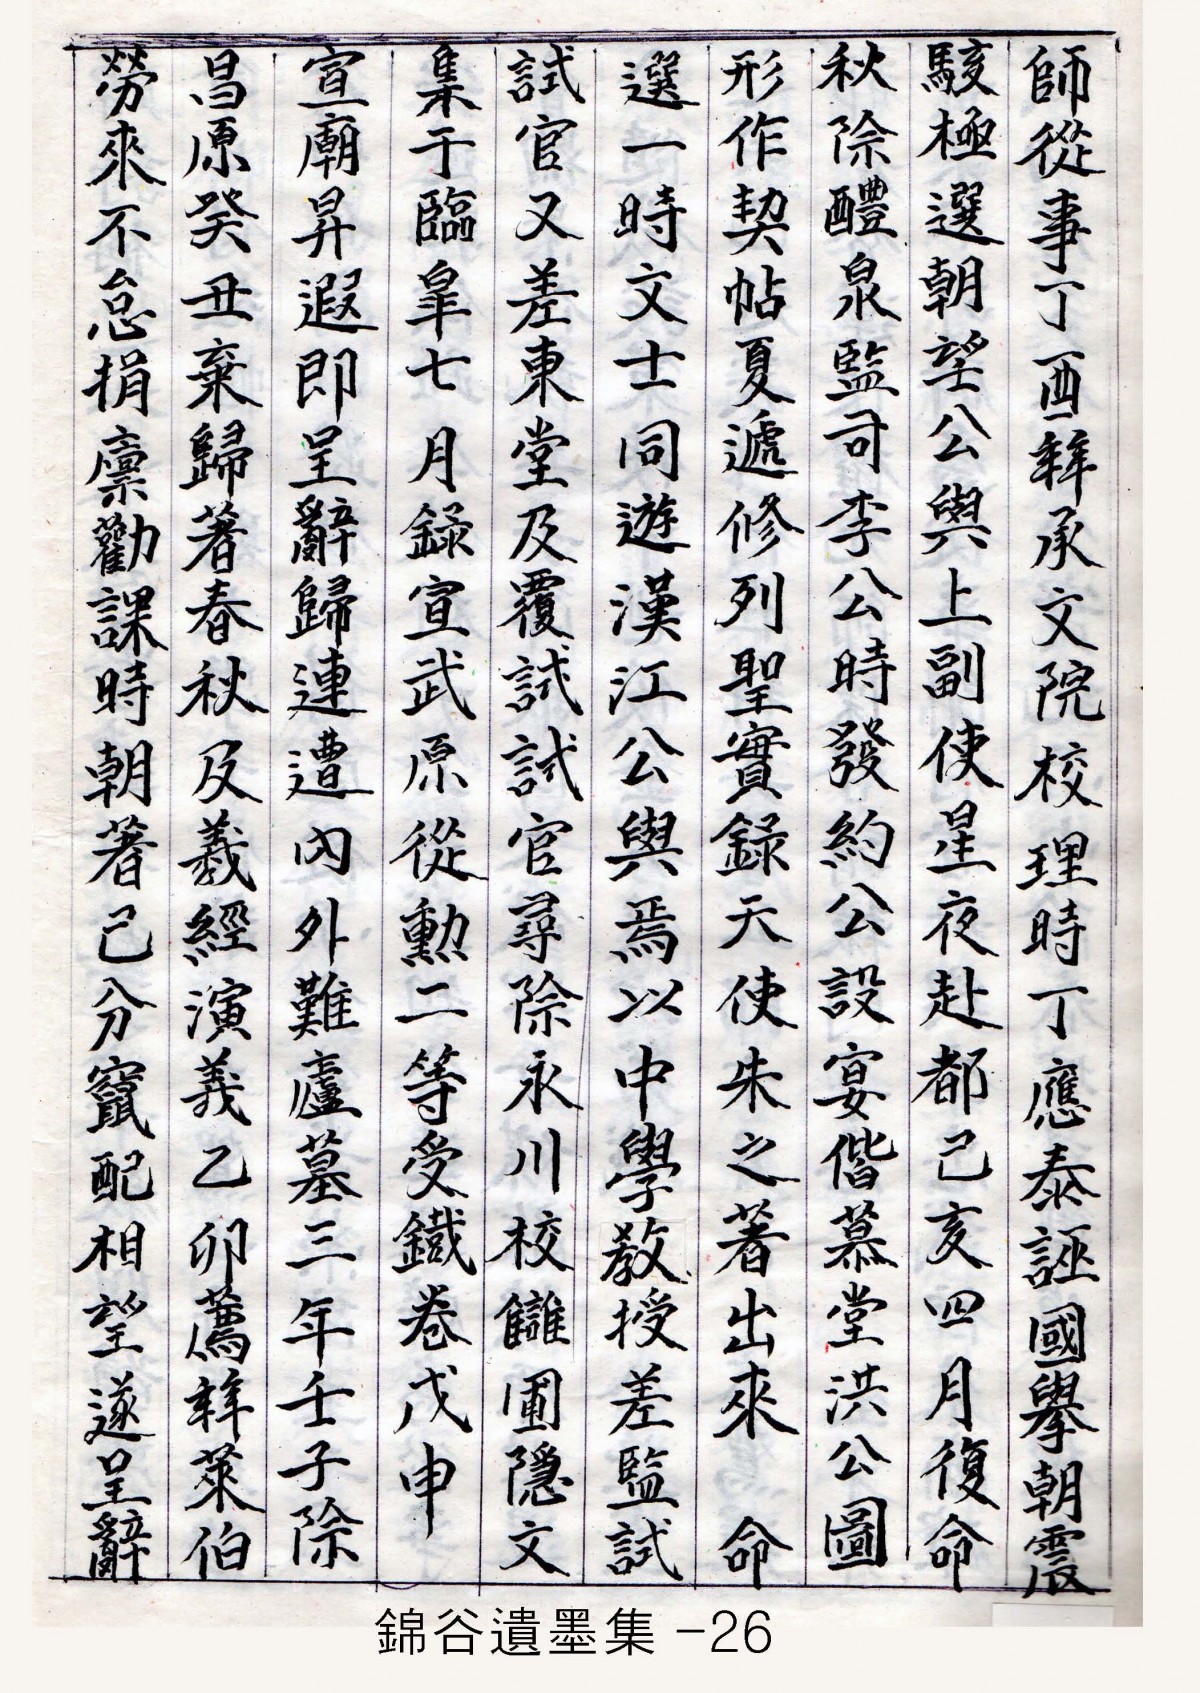 師從事丁酉移承文院校理時丁應泰誣國擧朝震
駭極選朝望公與上副使星夜赴都己亥四月復命
秋除醴泉監司李公時發約公設宴偕慕堂洪公圖
形作契帖夏遞修列聖實錄天使朱之著出來 命
選一時文士同遊漢江公與焉以中學敎授差監試
試官又差東堂及覆試試官尋除永川校讎圃隱文
集于臨皐七月錄宣武原從勳二等受鐵卷戊申
宣廟昇遐即呈辭歸連遭內外難廬墓三年壬子除
昌原癸丑棄歸著春秋及羲經演義乙卯薦移萊伯
勞來不怠捐廩勸課時朝著已分竄配相望遂呈辭
錦谷遺墨集 -26